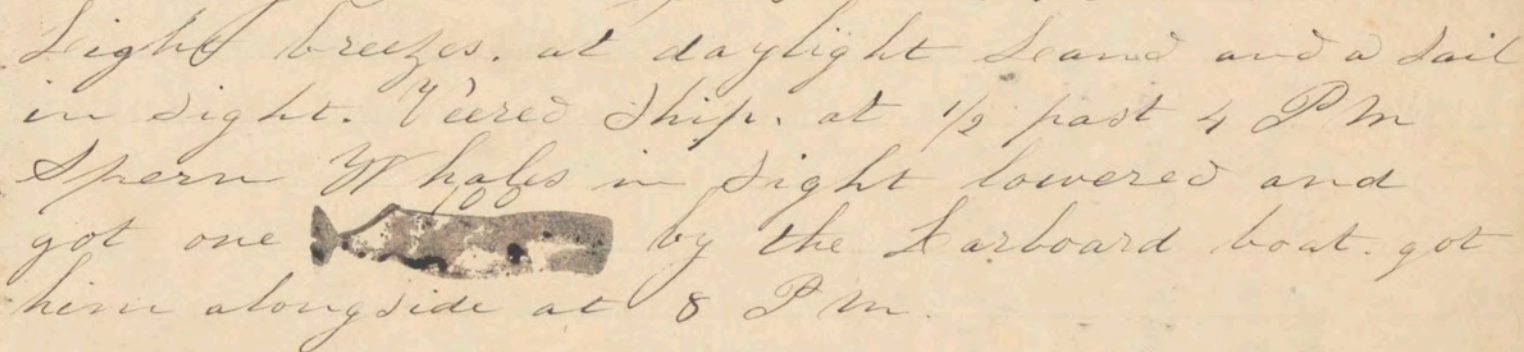 Light breezes. at daylight Leand and a Sail
in Sight. Veered Ship. at 1/2 past 4 P M
Sperm Whales in Sight lowered and
100
got one by the Larboard boat. got
him alongside at 8 P M.